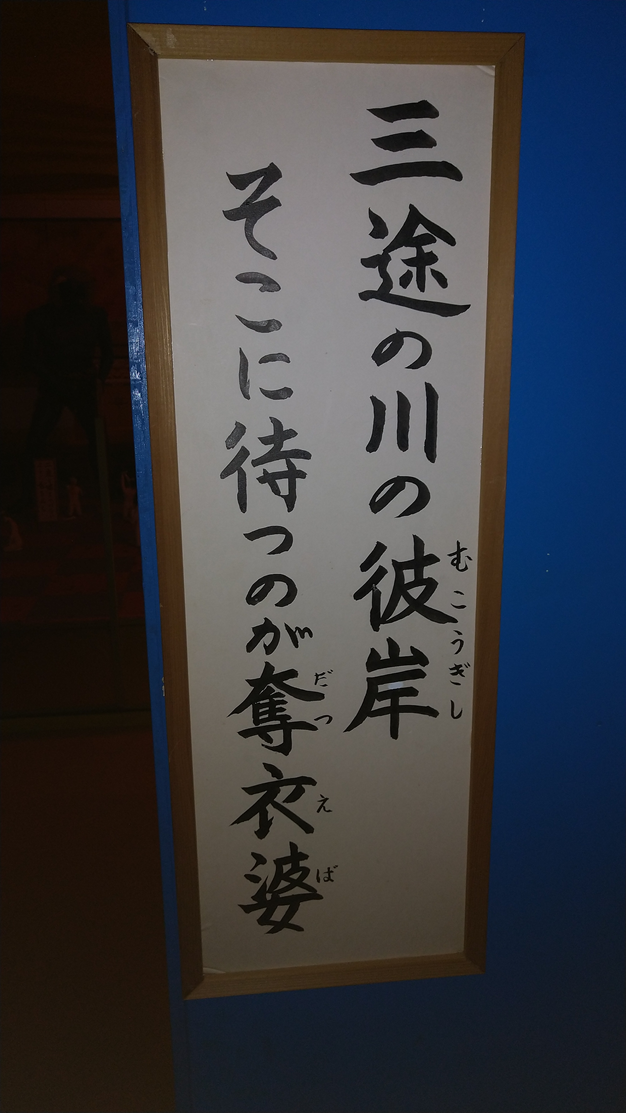 三途の川の彼岸
むこうぎし
そこに待つのが奪衣婆
だつえば